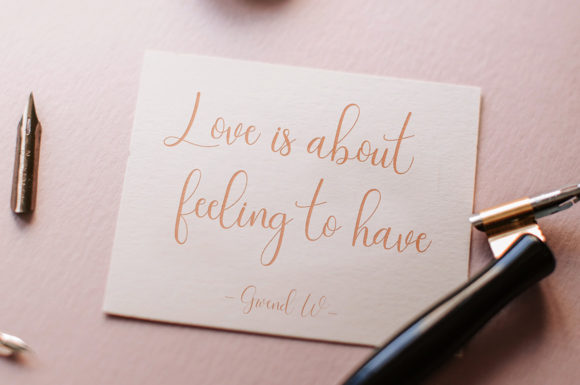 Love is about
feeling to have
- Gwend W -